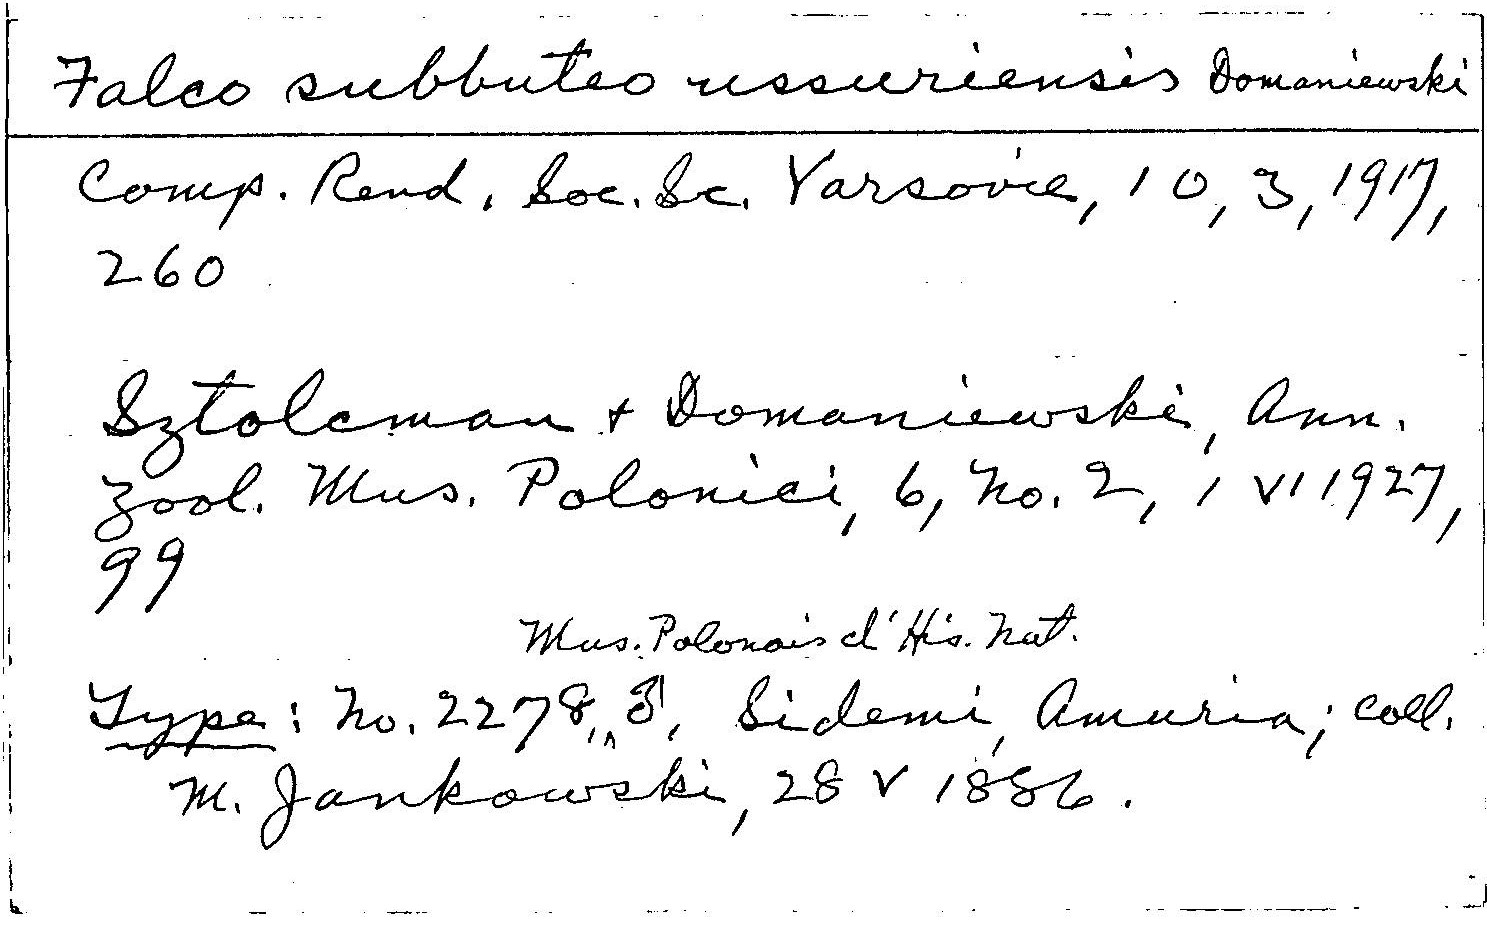 Falco subbuteo ussuriensis Domaniewski
Comp. Rend. Soc. Sc. Varsovie, 10, 3, 1917,
260
Sztolcman + Domaniewski, Ann.
Zool. Mus. Polonici, 6, No. 2, 1 VI 1927,
99
Mus. Polonais d'His. Nat.
Type: No. 2278, ♂, Sidemi, Amuria; coll.
M. Jankowski, 28 V 1886.